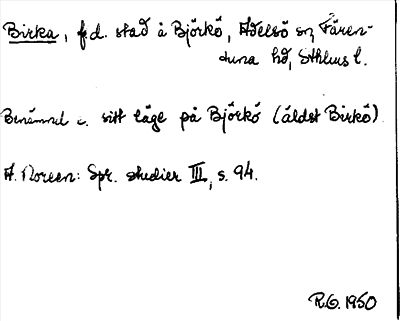 Birka, f.d. stad å Björkö, Adelsö sn, Fären-
tuna hd, Sthlms l.
Benämnd e. sitt läge på Björkö (äldst Birkö).
A. Noreen: Spr. studier III, s. 94.
R.O. 1950